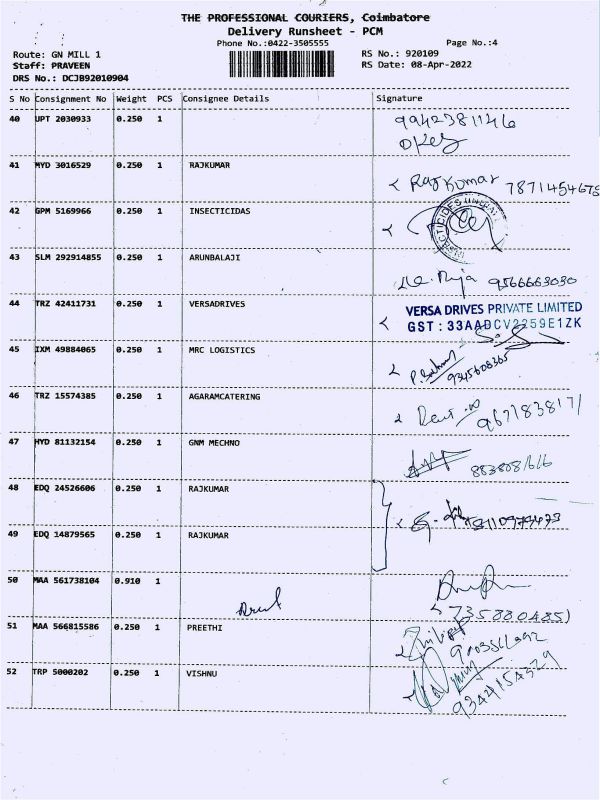 THE PROFESSIONAL COURIERS, Coimbatore
Delivery Runsheet - PCM
Phone No.:0422-3505555
Page No.:4
Route: GN MILL 1
RS No.: 920109
Staff: PRAVEEN
RS Date: 08-Apr-2022
DRS No.: DCJB92010904
S No Consignment No Weight PCS Consignee Details Signature
40 UPT 2030933 0.250 1 9942381146
41 MYD 3016529 0.250 1 RAJKUMAR
Raj Kumar 7871454675
42 GPM 5169966 0.250 1 INSECTICIDAS
43 SLM 292914855 0.250 1 ARUNBALAJI
Raja 9566663030
44 TRZ 42411731 0.250 1 VERSADRIVES
VERSA DRIVES PRIVATE LIMITED
GST : 33AADCV2259E1ZK
45 IXM 49884065 0.250 1 MRC LOGISTICS
9345608365
46 TRZ 15574385 0.250 1 AGARAMCATERING
9671838171
47 HYD 81132154 0.250 1 GNM MECHNO
48 EDQ 24526606 0.250 1 RAJKUMAR
49 EDQ 14879565 0.250 1 RAJKUMAR
50 MAA 561738104 0.910 1
7358804851
51 MAA 566815586 0.250 1 PREETHI
52 TRP 5000202 0.250 1 VISHNU
9344154329